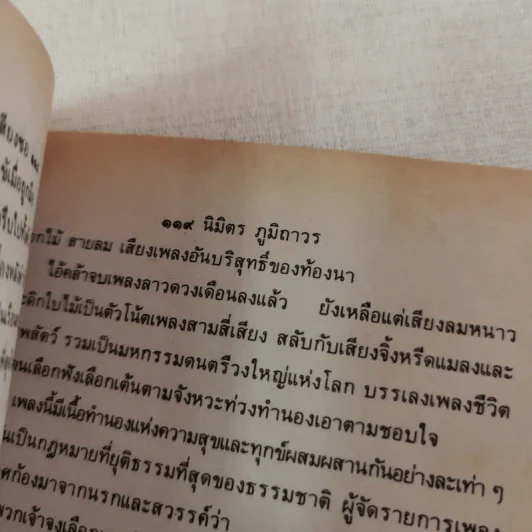 ๑๑๙ นิมิตร ภูมิถาวร
สายลม เสียงเพลงอันบริสุทธิ์ของท้องนา
ไอ้คล้าจบเพลงลาวดวงเดือนลงแล้ว ยังเหลือแต่เสียงลมหนาว
ใบไม้เป็นตัวโน้ตเพลงสามสี่เสียง สลับกับเสียงจิ้งหรีดแมลงและ
รวมเป็นมหกรรมดนตรีวงใหญ่แห่งโลก บรรเลงเพลงชีวิต
เลือกฟังเลือกเต้นตามจังหวะท่วงทำนองเอาตามชอบใจ
เพลงนี้มีเนื้อทำนองแห่งความสุขและทุกข์ผสมผสานกันอย่างละเท่า ๆ
เป็นกฎหมายที่ยุติธรรมที่สุดของธรรมชาติ ผู้จัดรายการเพลง
ก้องมาจากนรกและสวรรค์ว่า